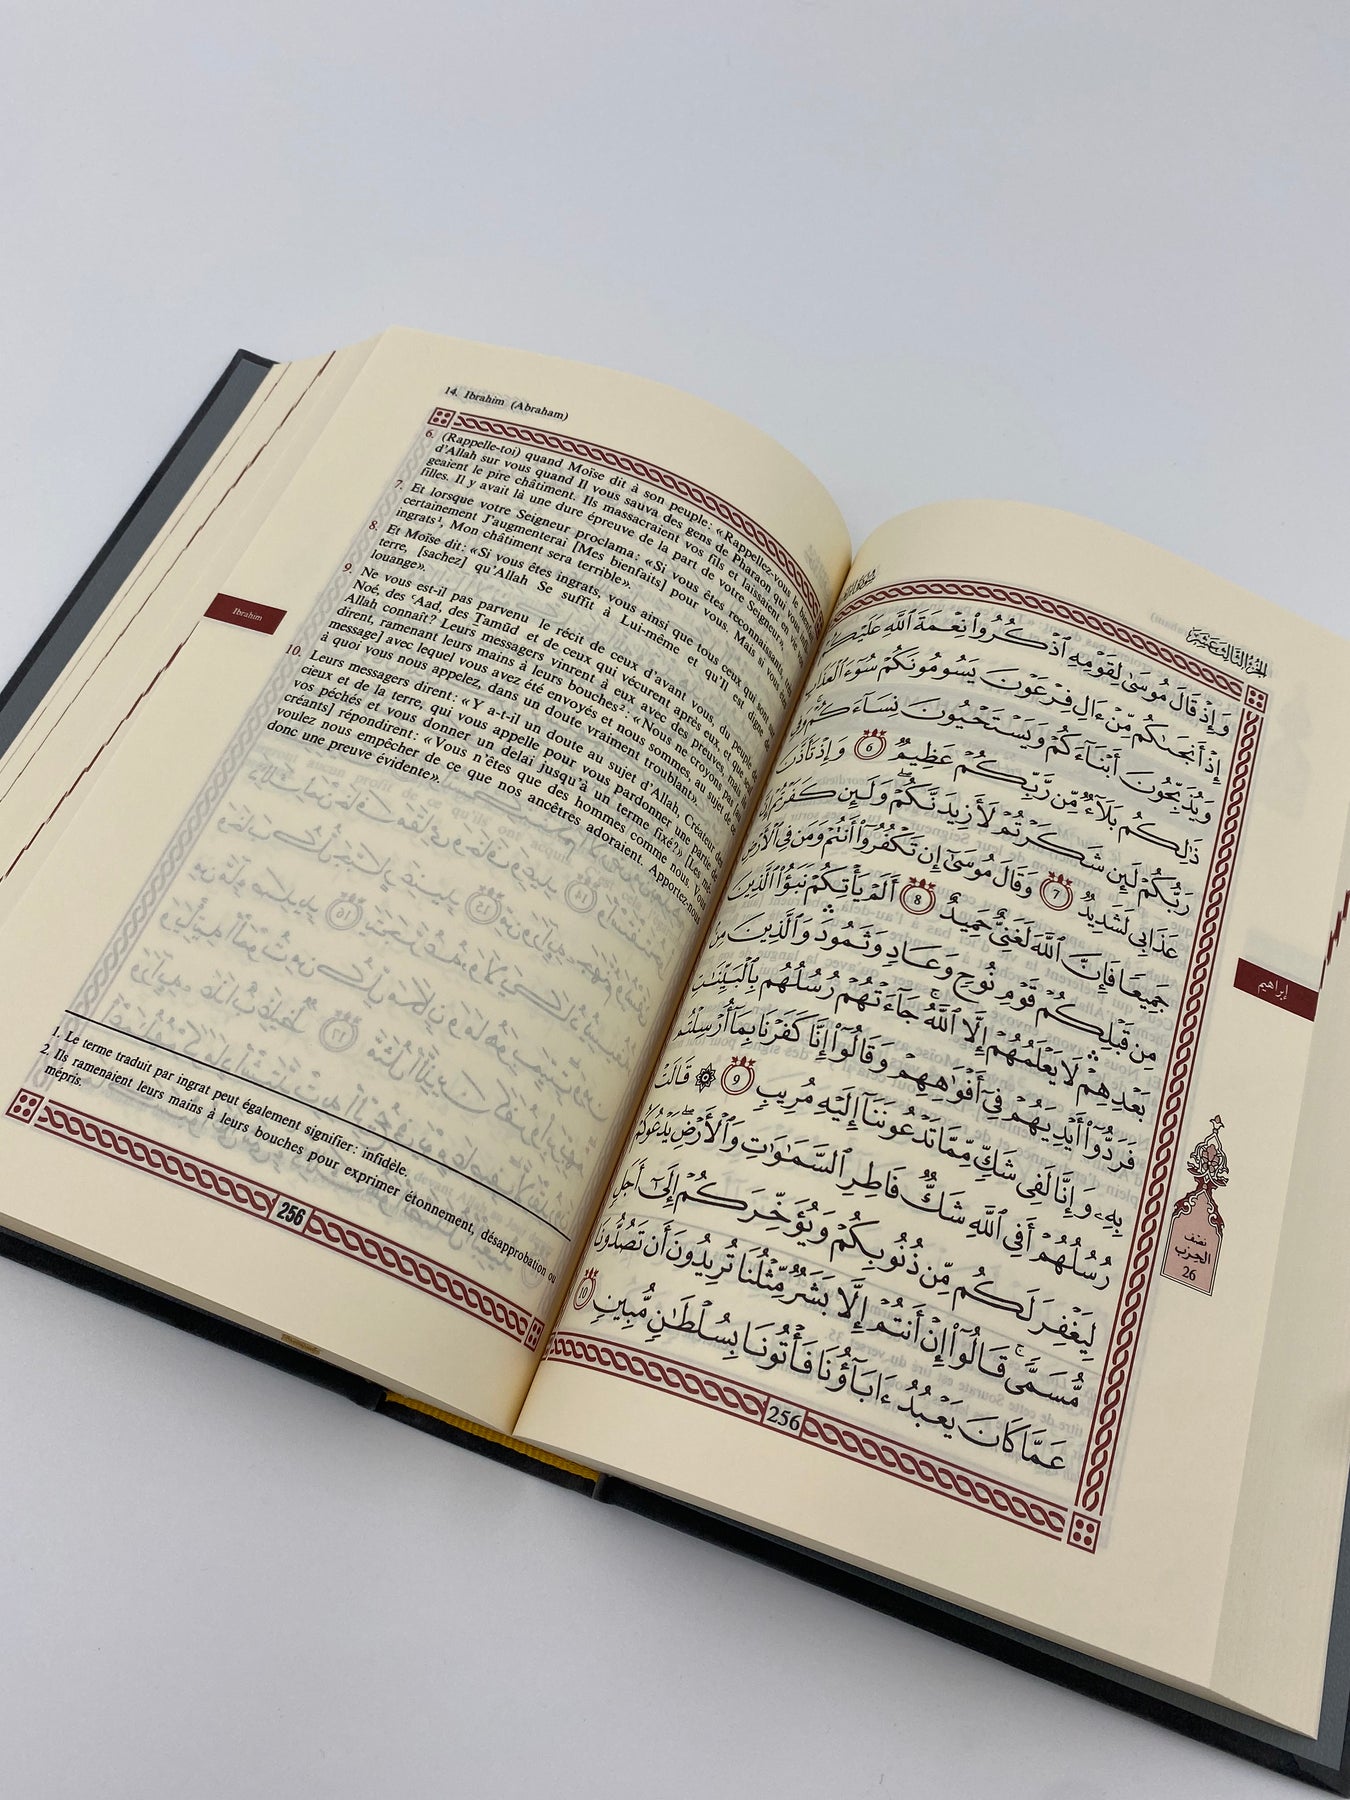 14. Ibrahim (Abraham)
6. (Rappelle-toi) quand Moïse dit à son peuple: «Rappellez-vous le
d'Allah sur vous quand Il vous sauva des gens de Pharaon qui vous
geaient le pire châtiment. Ils massacraient vos fils et laissaient en vie
filles. Il y avait là une dure épreuve de la part de votre Seigneur».
7. Et lorsque votre Seigneur proclama: «Si vous êtes reconnaissants,
certainement J'augmenterai [Mes bienfaits] pour vous. Mais si vous
ingrats¹, Mon châtiment sera terrible».
8. Et Moïse dit: «Si vous êtes ingrats, vous ainsi que tous ceux qui sont
terre, [sachez] qu'Allah Se suffit à Lui-même et qu'Il est digne de
louange».
9. Ne vous est-il pas parvenu le récit de ceux d'avant vous, du peuple de
Noé, des ʿAad, des Tamūd et de ceux qui vécurent après eux, et que seul
Allah connaît? Leurs messagers vinrent à eux avec des preuves, mais ils
dirent, ramenant leurs mains à leurs bouches²: «Nous ne croyons pas [au
message] avec lequel vous avez été envoyés et nous sommes, au sujet de ce
à quoi vous nous appelez, dans un doute vraiment troublant».
10. Leurs messagers dirent: «Y a-t-il un doute au sujet d'Allah, Créateur des
cieux et de la terre, qui vous appelle pour vous pardonner une partie de
vos péchés et vous donner un delai jusqu'à un terme fixé?» [Les mé-
créants] répondirent: «Vous n'êtes que des hommes comme nous. Vous
voulez nous empêcher de ce que nos ancêtres adoraient. Apportez-nous
donc une preuve évidente».
1. Le terme traduit par ingrat peut également signifier: infidèle.
2. Ils ramenaient leurs mains à leurs bouches pour exprimer étonnement, désapprobation ou
mépris.
256
Ibrahim
الجزء الثالث عشر
وَإِذْ قَالَ مُوسَىٰ لِقَوْمِهِ ٱذْكُرُوا۟ نِعْمَةَ ٱللَّهِ عَلَيْكُمْ
إِذْ أَنجَىٰكُم مِّنْ ءَالِ فِرْعَوْنَ يَسُومُونَكُمْ سُوٓءَ ٱلْعَذَابِ
وَيُذَبِّحُونَ أَبْنَآءَكُمْ وَيَسْتَحْيُونَ نِسَآءَكُمْ وَفِى
ذَٰلِكُم بَلَآءٌ مِّن رَّبِّكُمْ عَظِيمٌ 6 وَإِذْ تَأَذَّنَ
رَبُّكُمْ لَئِن شَكَرْتُمْ لَأَزِيدَنَّكُمْ وَلَئِن كَفَرْتُمْ إِنَّ
عَذَابِى لَشَدِيدٌ 7 وَقَالَ مُوسَىٰٓ إِن تَكْفُرُوٓا۟ أَنتُمْ وَمَن فِى ٱلْأَرْضِ
جَمِيعًا فَإِنَّ ٱللَّهَ لَغَنِىٌّ حَمِيدٌ 8 أَلَمْ يَأْتِكُمْ نَبَؤُا۟ ٱلَّذِينَ
مِن قَبْلِكُمْ قَوْمِ نُوحٍ وَعَادٍ وَثَمُودَ وَٱلَّذِينَ مِنۢ
بَعْدِهِمْ لَا يَعْلَمُهُمْ إِلَّا ٱللَّهُ جَآءَتْهُمْ رُسُلُهُم بِٱلْبَيِّنَٰتِ
فَرَدُّوٓا۟ أَيْدِيَهُمْ فِىٓ أَفْوَٰهِهِمْ وَقَالُوٓا۟ إِنَّا كَفَرْنَا بِمَآ أُرْسِلْتُم
بِهِۦ وَإِنَّا لَفِى شَكٍّ مِّمَّا تَدْعُونَنَآ إِلَيْهِ مُرِيبٍ 9 ۞ قَالَتْ
رُسُلُهُمْ أَفِى ٱللَّهِ شَكٌّ فَاطِرِ ٱلسَّمَٰوَٰتِ وَٱلْأَرْضِ يَدْعُوكُمْ
لِيَغْفِرَ لَكُم مِّن ذُنُوبِكُمْ وَيُؤَخِّرَكُمْ إِلَىٰٓ أَجَلٍ
مُّسَمًّى قَالُوٓا۟ إِنْ أَنتُمْ إِلَّا بَشَرٌ مِّثْلُنَا تُرِيدُونَ أَن تَصُدُّونَا
عَمَّا كَانَ يَعْبُدُ ءَابَآؤُنَا فَأْتُونَا بِسُلْطَٰنٍ مُّبِينٍ 10
256
إبراهيم
نصف
الحزب
26